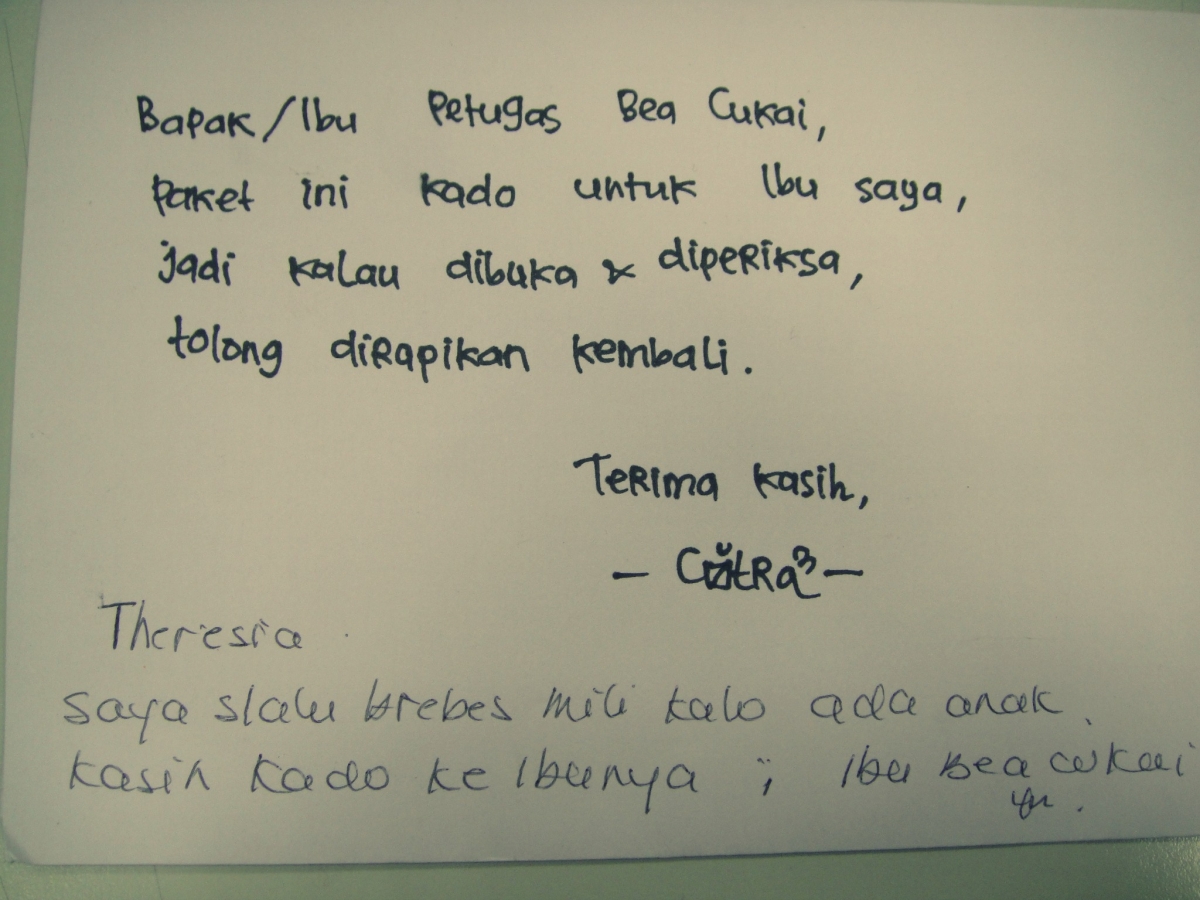 Bapak/Ibu Petugas Bea Cukai,
Paket ini kado untuk Ibu saya,
jadi kalau dibuka & diperiksa,
tolong dirapikan kembali.
Terima kasih,
Theresia
saya slalu brebes mili kalo ada anak
kasih kado ke Ibunya ; Ibu Bea cukai